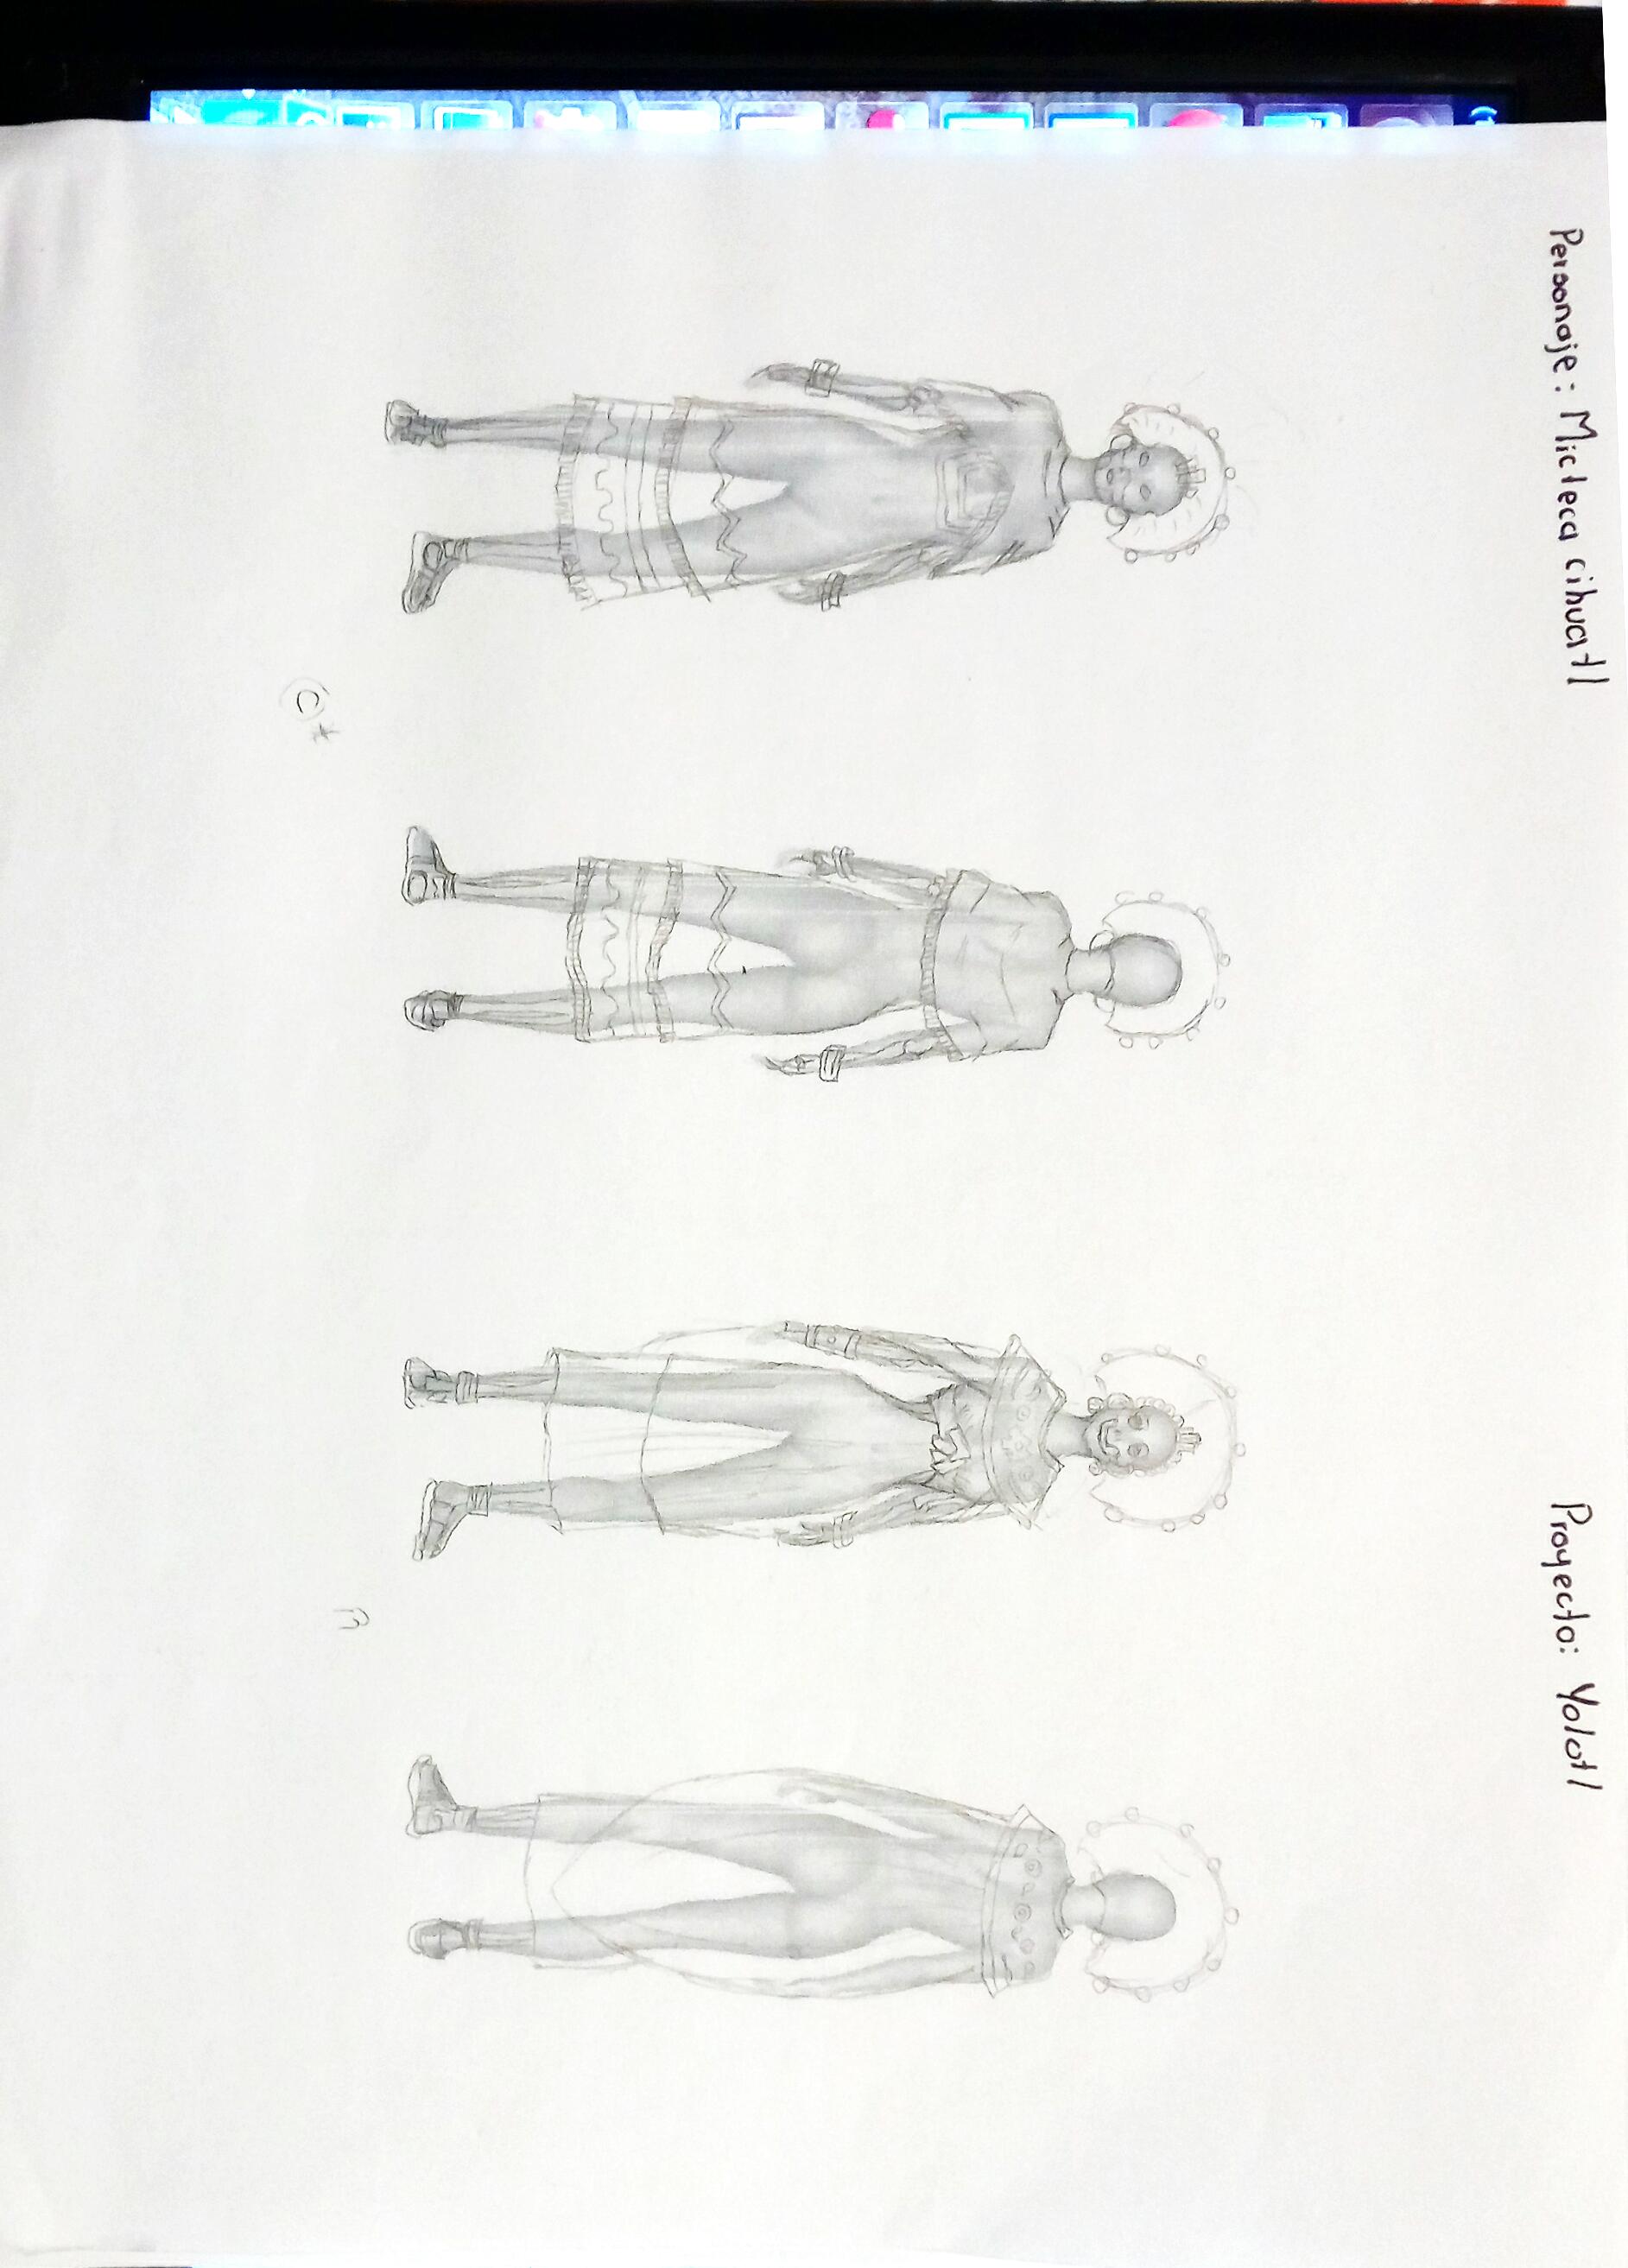 Personaje: Micteca cihuatl
Proyecto: Yolotl
C *